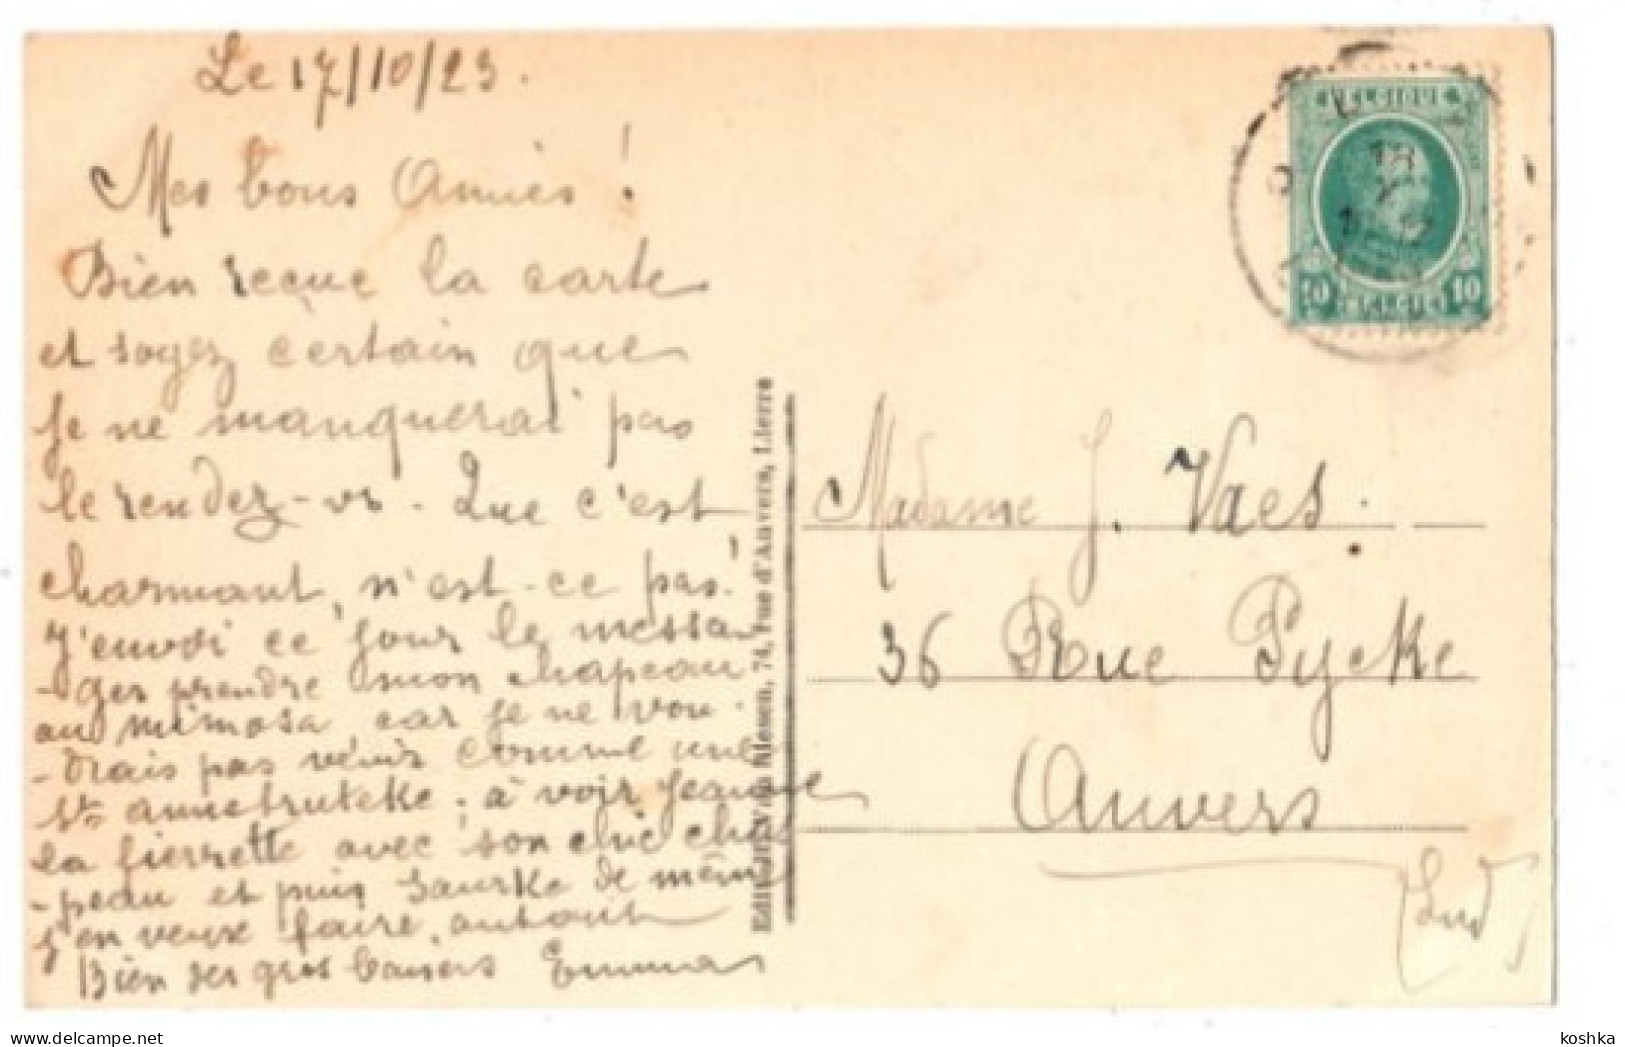 Le 17/10/23.
Mes bons Amies !
Bien recue la carte
et soyez certain que
je ne manquerai pas
le rendez-vs. Que c'est
charmant, n'est-ce pas!
J'envoi ce jour le messa-
-ger prendre mon chapeau
au mimosa car je ne vou-
-drais pas venir comme une
Ste ; à voir Jeanne
la fierrette avec son chic cha
-peau et puis de même
j'en veux faire autant
Bien des gros baisers Emma
Edit. Jh. Van Nlemen, 74, rue d'Anvers, Lierre
BELGIE
10 BELGIE 10
Madame J. Vaes.
36 Rue Pycke
Anvers
(Sud)
koshka